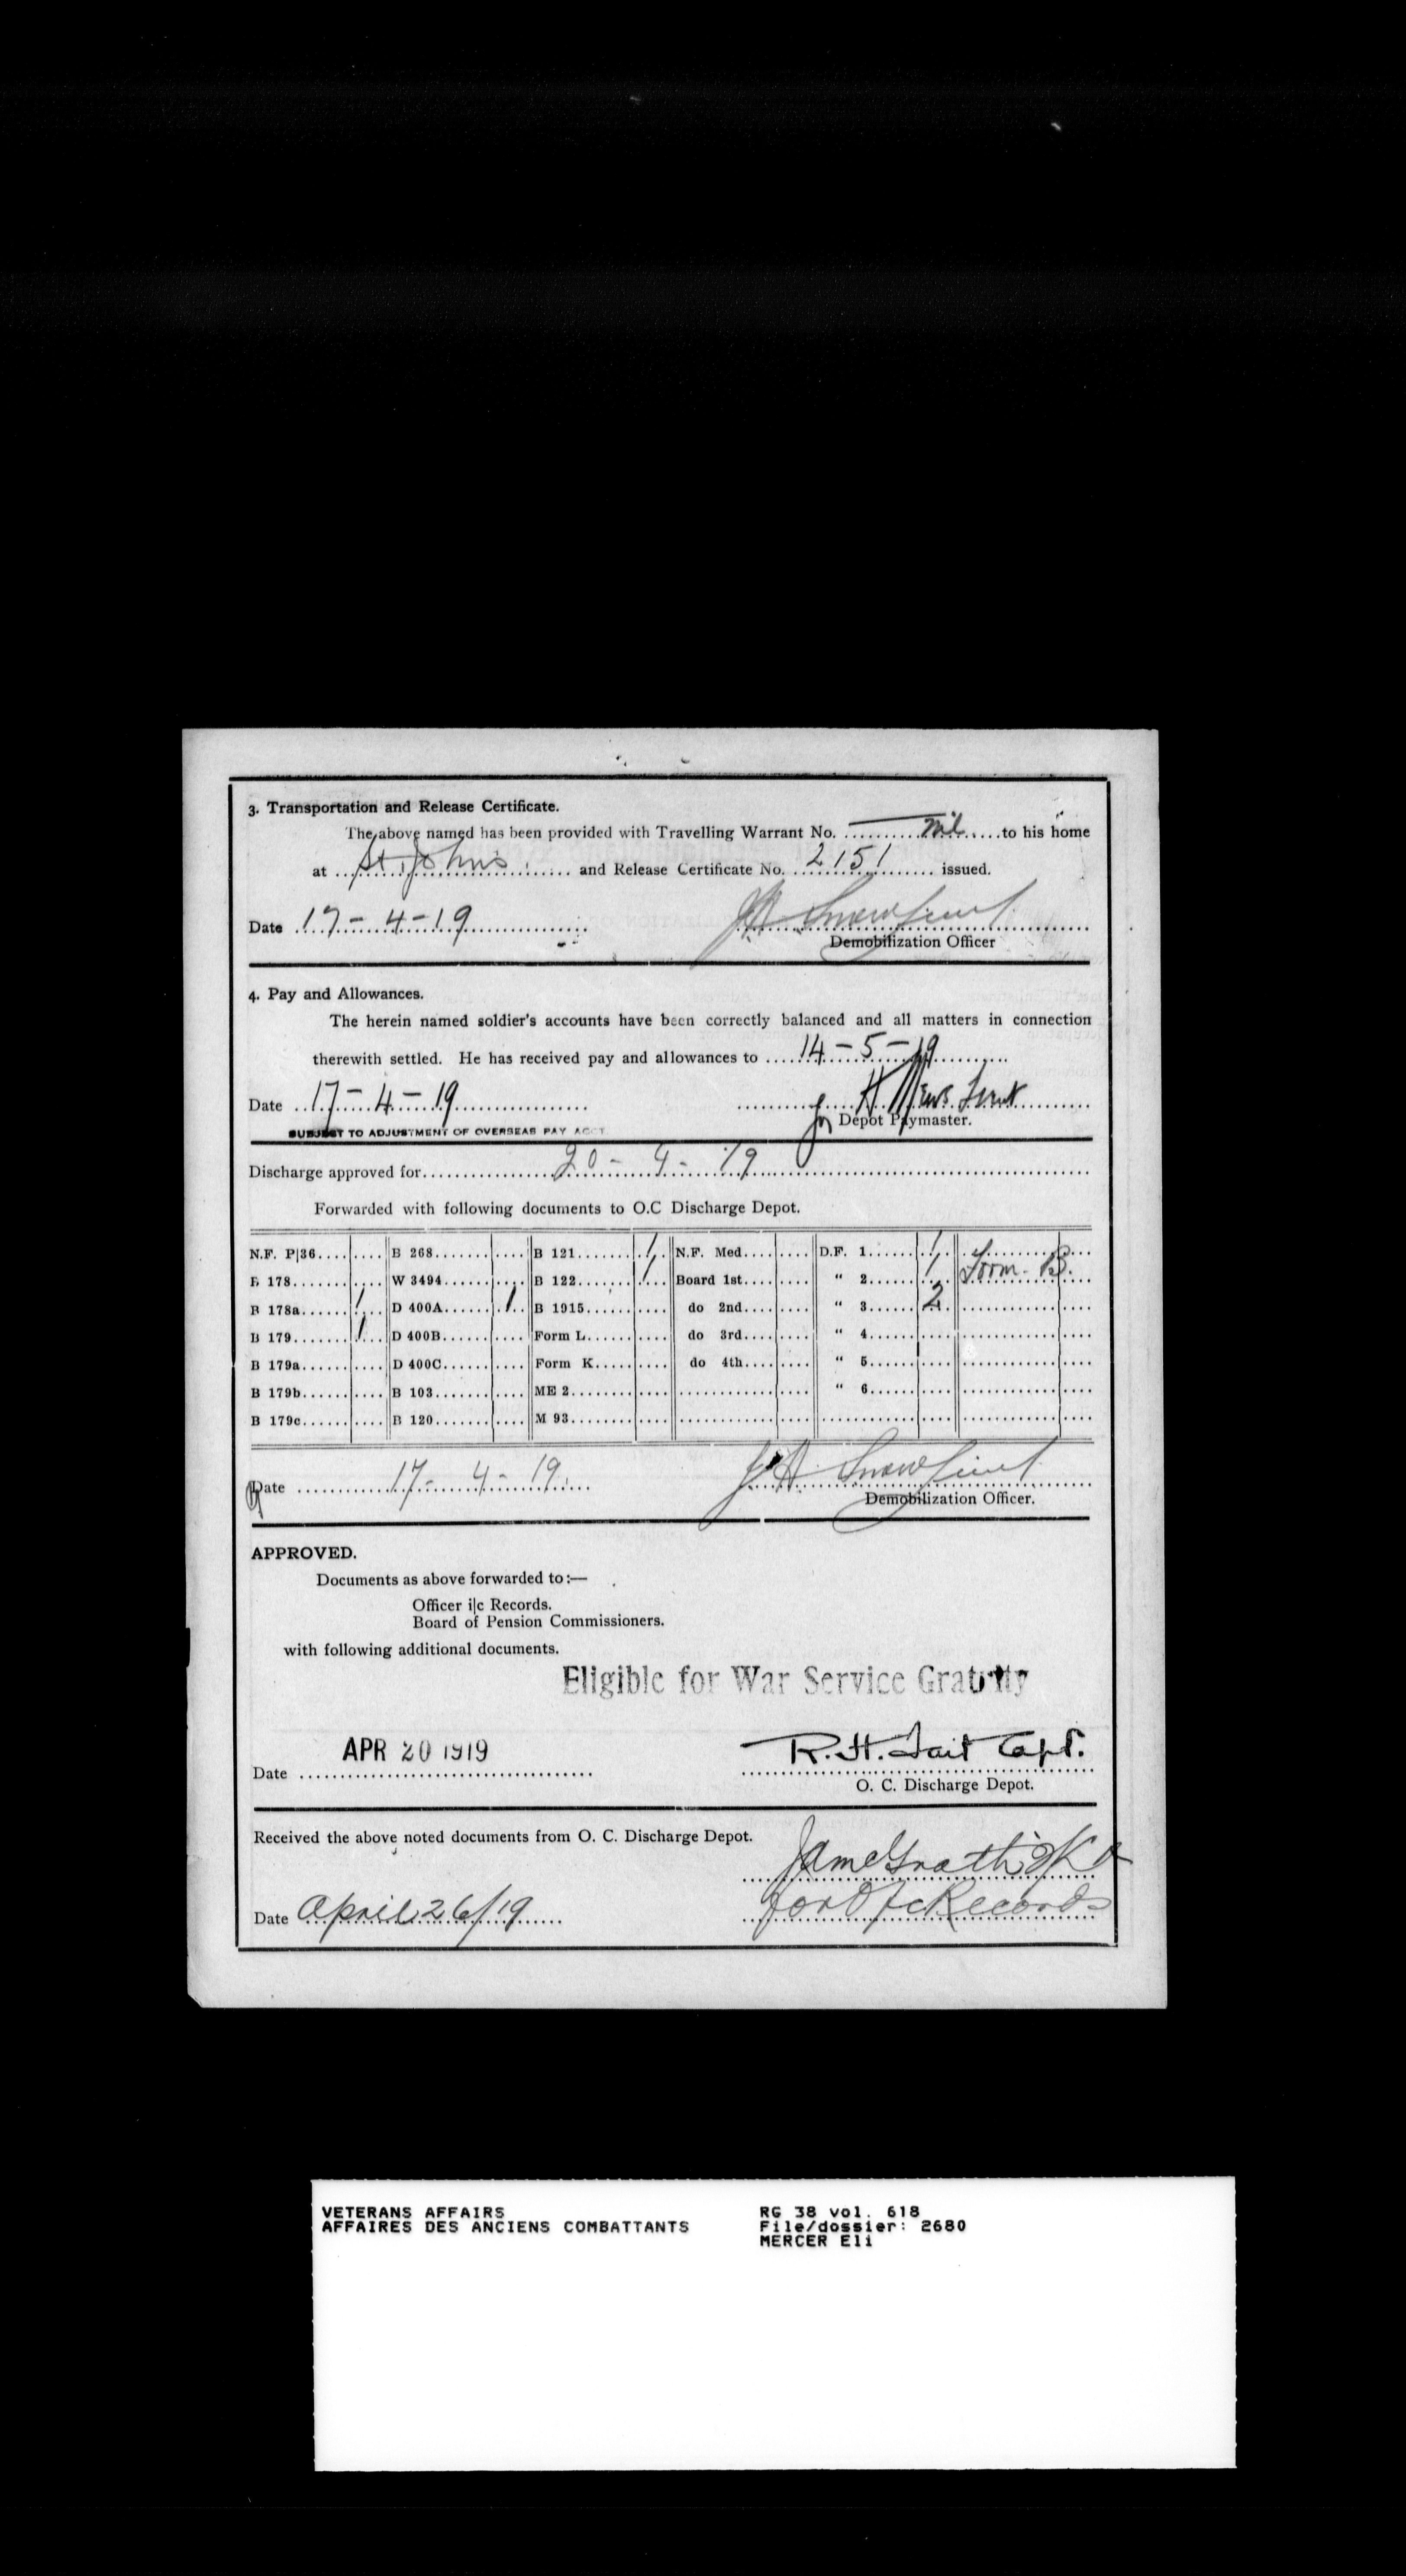 3. Transportation and Release Certificate.
The above named has been provided with Travelling Warrant No. .......... Nil ..... to his home
at .... St. Johns ............ and Release Certificate No. .. 2151 ........ issued.
Date .. 17-4-19 .............. J.A. Snow Lieut
Demobilization Officer
4. Pay and Allowances.
The herein named soldier's accounts have been correctly balanced and all matters in connection
therewith settled. He has received pay and allowances to ..... 14-5-19 ..........
Date ... 17-4-19 .............. H Mews Lieut
for Depot Paymaster.
SUBJECT TO ADJUSTMENT OF OVERSEAS PAY ACCT.
Discharge approved for .................. 20-4-19 ..................
Forwarded with following documents to O.C Discharge Depot.
N.F. P|36.... B 268....... B 121....... 1 N.F. Med.... D.F. 1...... 1
B 178....... W 3494....... B 122....... 1 Board 1st.... " 2...... 1 Form B.
B 178a...... 1 D 400A....... 1 B 1915...... do 2nd.... " 3...... 2
B 179....... 1 D 400B....... Form L...... do 3rd.... " 4......
B 179a...... D 400C....... Form K..... do 4th.... " 5......
B 179b...... B 103....... ME 2........ " 6......
B 179c...... B 120....... M 93........
Date ............ 17-4-19. J.A. Snow Lieut
Demobilization Officer.
APPROVED.
Documents as above forwarded to:—
Officer i|c Records.
Board of Pension Commissioners.
with following additional documents.
Eligible for War Service Gratuity
Date APR 20 1919 R.H. Tait Capt.
O. C. Discharge Depot.
Received the above noted documents from O. C. Discharge Depot.
Date April 26/19 for O/c Records
VETERANS AFFAIRS RG 38 vol. 618
AFFAIRES DES ANCIENS COMBATTANTS File/dossier: 2680
MERCER Eli